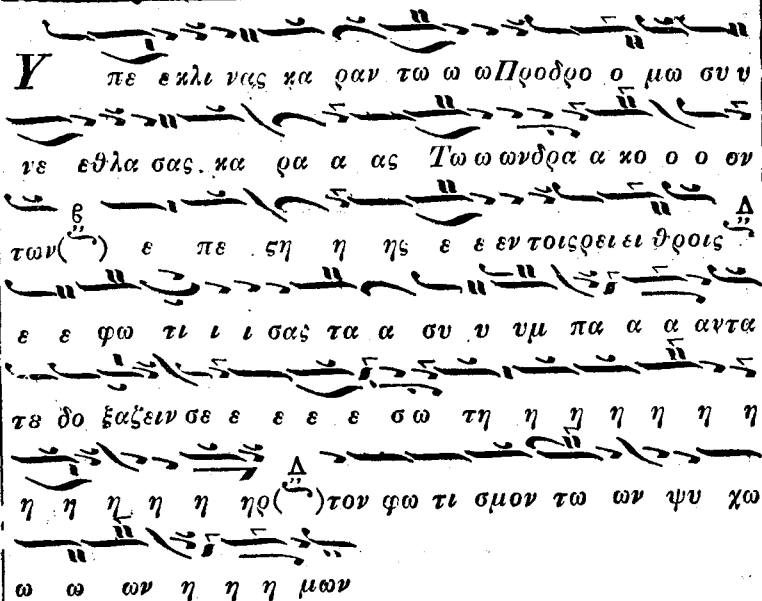 Υ πε εκλι νας κα ραν τω ω ω Προδρο ο μω συ υ
νε εθλα σας. κα ρα α ας Τω ω ωνδρα α κο ο ο ον
των( ) ε πε ςη η ης ε ε εν τοιςρει ει θροις
ε ε φω τι ι ι σας τα α συ υ υμ πα α α αντα
τε δο ξαζειν σε ε ε ε ε ε σω τη η η η η η η
η η η η η ηρ( ) τον φω τι σμον τω ων ψυ χω
ω ω ων η η η μων